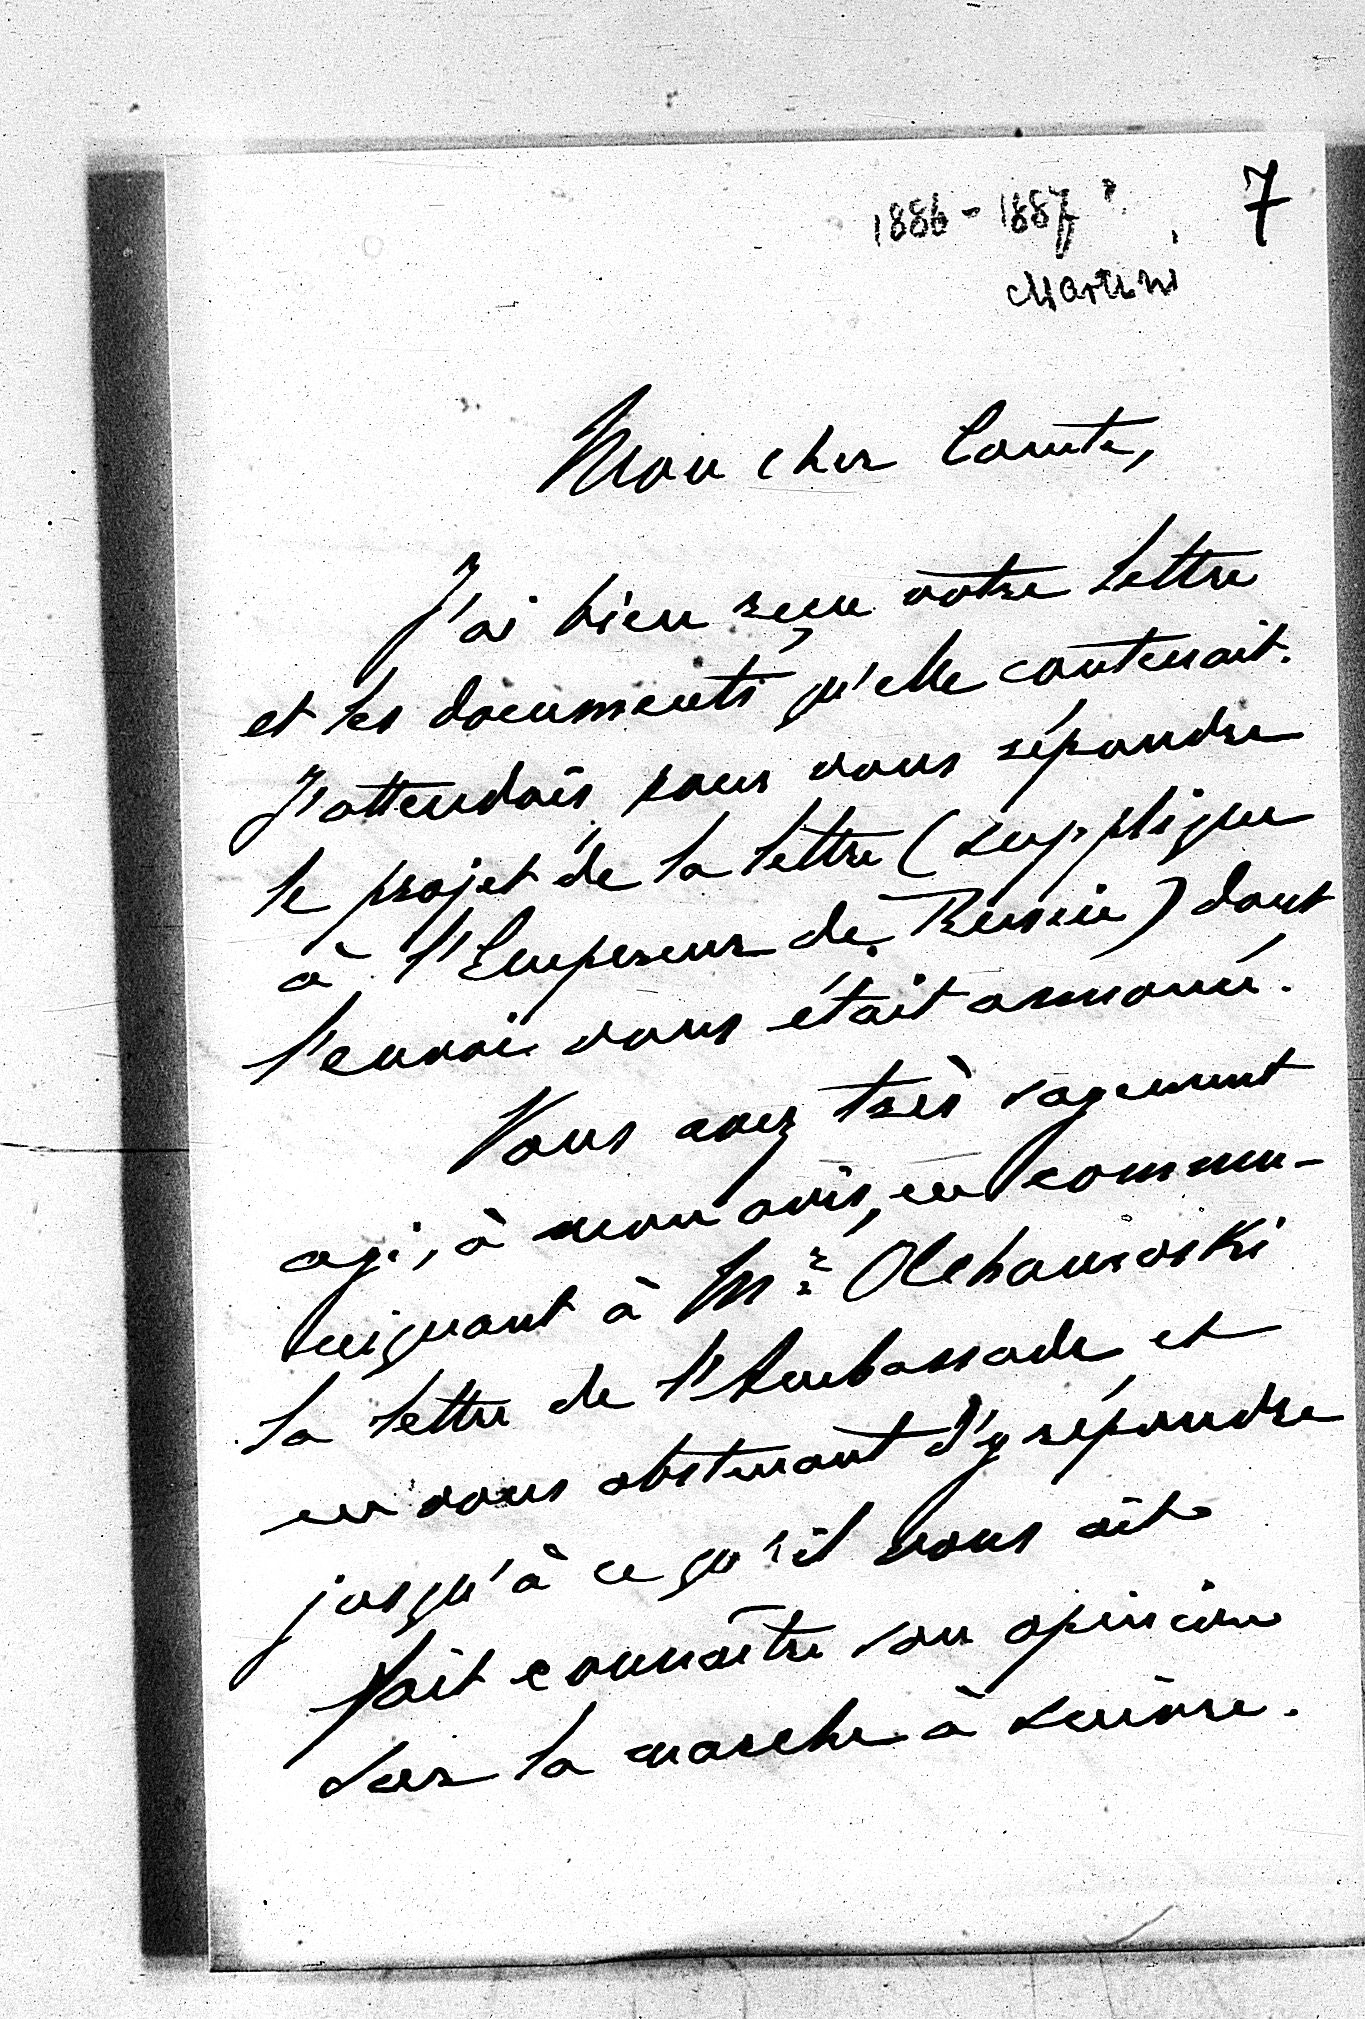 1886-1887?
7
Martini
Mon cher Comte,
J'ai bien reçu votre lettre
et les documents qu'elle contenait.
J'attendais pour vous répondre
le projet de la lettre (supplique
à l'Empereur de Russie) dont
l'envoi vous était annoncé.
Vous avez très sagement
agi, à mon avis, en commu-
niquant à Mr Olchanowski
la lettre de l'Ambassade et
en vous abstenant d'y répondre
jusqu'à ce qu'il vous ait
fait connaître son opinion
sur la marche à suivre.